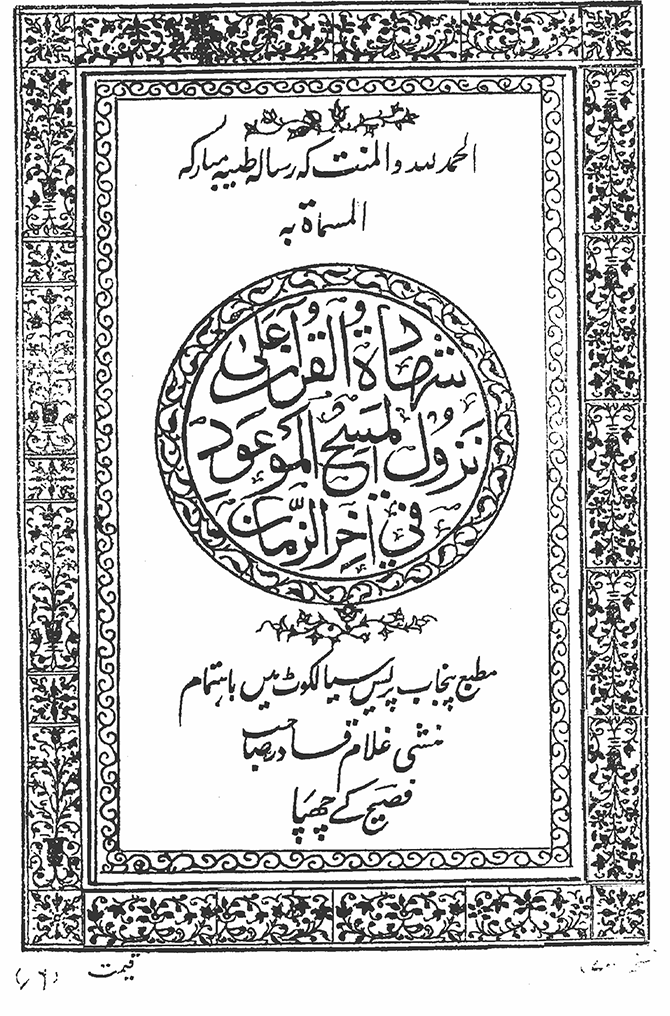 الحمد للہ والمنت کہ رسالہ طیبہ مبارکہ
المسماة بہ
شهادة القرآن على
نزول المسيح الموعود
في آخر الزمان
مطبع پنجاب پریس سیالکوٹ میں باہتمام
منشی غلام قادر صاحب
فصیح کے چھپا
قیمت